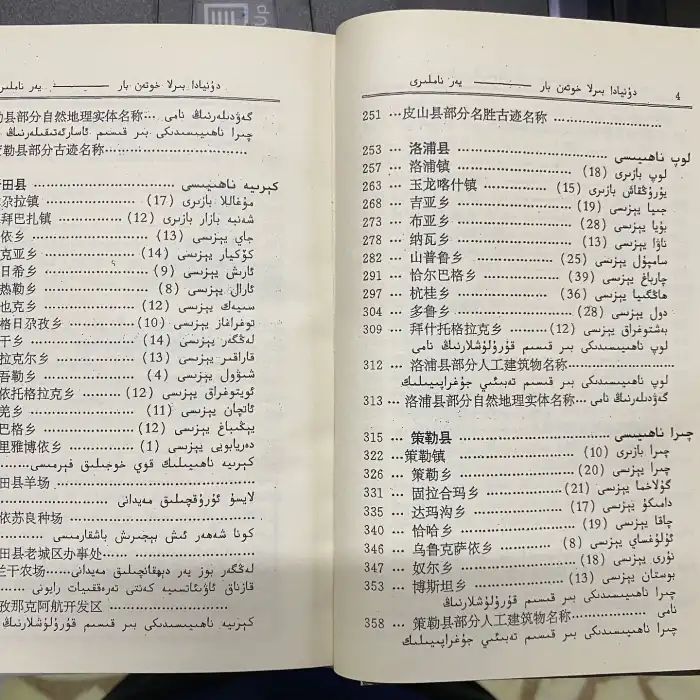 دۇنيادا بىرلا خوتەن بار ——— يەر ناملىرى
گەۋدىلەرنىڭ نامى ... 县部分自然地理实体名称
چىرا ناھىيىسىدىكى بىر قىسىم ئاسارەتىقىلەرنىڭ
勒县部分古迹名称
كېرىيە ناھىيىسى ... 田县
مۇغاللا بازىرى (17) ... 尕拉镇
شەنبە بازار بازىرى (12) ... 拜巴扎镇
جاي يېزىسى (13) ... 依乡
كۆكيار يېزىسى (14) ... 克亚乡
ئارىش يېزىسى (9) ... 日希乡
ئارال يېزىسى (8) ... 热勒乡
سىيەك يېزىسى (12) ... 也克乡
توغراغاز يېزىسى (10) ... 格日尕孜乡
لەڭگەر يېزىسى (14) ... 干乡
قاراقىر يېزىسى (13) ... 拉克尔乡
شىۋول يېزىسى (4) ... 吾勒乡
ئويتوغراق يېزىسى (12) ... 依托格拉克乡
ئاتچان يېزىسى (11) ... 羌乡
يېڭىباغ يېزىسى (12) ... 巴格乡
دەريابويى يېزىسى (1) ... 里雅博依乡
كېرىيە ناھىيىلىك قوي خوجىلىق فېرمىسى ...
田县羊场 ...
لايسۇ ئۇرۇقچىلىق مەيدانى
依苏良种场 ...
كونا شەھەر ئىش بېجىرىش باشقارمىسى ...
田县老城区办事处 ...
لەڭگەر بوز يەر دېھقانچىلىق مەيدانى ... 兰干农场
قازناق ئاۋىئاتسىيە كەنتى تەرەققىيات رايونى ...
孜那克阿航开发区 ...
كېرىيە ناھىيىسىدىكى بىر قىسىم قۇرۇلۇشلارنىڭ
4 دۇنيادا بىرلا خوتەن بار ——— يەر ناملىرى
251 ... 皮山县部分名胜古迹名称 ...
لوپ ناھىيىسى ... 253 ... 洛浦县
لوپ بازىرى (18) ... 257 ... 洛浦镇
يۇرۇڭقاش بازىرى (15) ... 263 ... 玉龙喀什镇
جىيا يېزىسى (19) ... 268 ... 吉亚乡
بۇيا يېزىسى (28) ... 273 ... 布亚乡
ناۋا يېزىسى (13) ... 278 ... 纳瓦乡
سامپۇل يېزىسى (25) ... 282 ... 山普鲁乡
چارباغ يېزىسى (39) ... 291 ... 恰尔巴格乡
ھاڭگىيا يېزىسى (36) ... 297 ... 杭桂乡
دول يېزىسى (28) ... 304 ... 多鲁乡
بەشتوغراق يېزىسى (12) ... 309 ... 拜什托格拉克乡
لوپ ناھىيىسىدىكى بىر قىسىم قۇرۇلۇشلارنىڭ نامى
312 ... 洛浦县部分人工建筑物名称 ...
لوپ ناھىيىسىدىكى بىر قىسىم تەبىئىي جۇغراپىيىلىك
گەۋدىلەرنىڭ نامى ... 313 ... 洛浦县部分自然地理实体名称
چىرا ناھىيىسى ... 315 ... 策勒县
چىرا بازىرى (10) ... 322 ... 策勒镇
چىرا يېزىسى (20) ... 326 ... 策勒乡
گۇلاخما يېزىسى (21) ... 331 ... 固拉合玛乡
دامىكۇ يېزىسى (17) ... 335 ... 达玛沟乡
چاقا يېزىسى (19) ... 340 ... 恰哈乡
ئۇلۇغساي يېزىسى (8) ... 346 ... 乌鲁克萨依乡
نۇرى يېزىسى (18) ... 347 ... 奴尔乡
بوستان يېزىسى (13) ... 353 ... 博斯坦乡
چىرا ناھىيىسىدىكى بىر قىسىم قۇرۇلۇشلارنىڭ
نامى ... 358 ... 策勒县部分人工建筑物名称
چىرا ناھىيىسىدىكى بىر قىسىم تەبىئىي جۇغراپىيىلىك